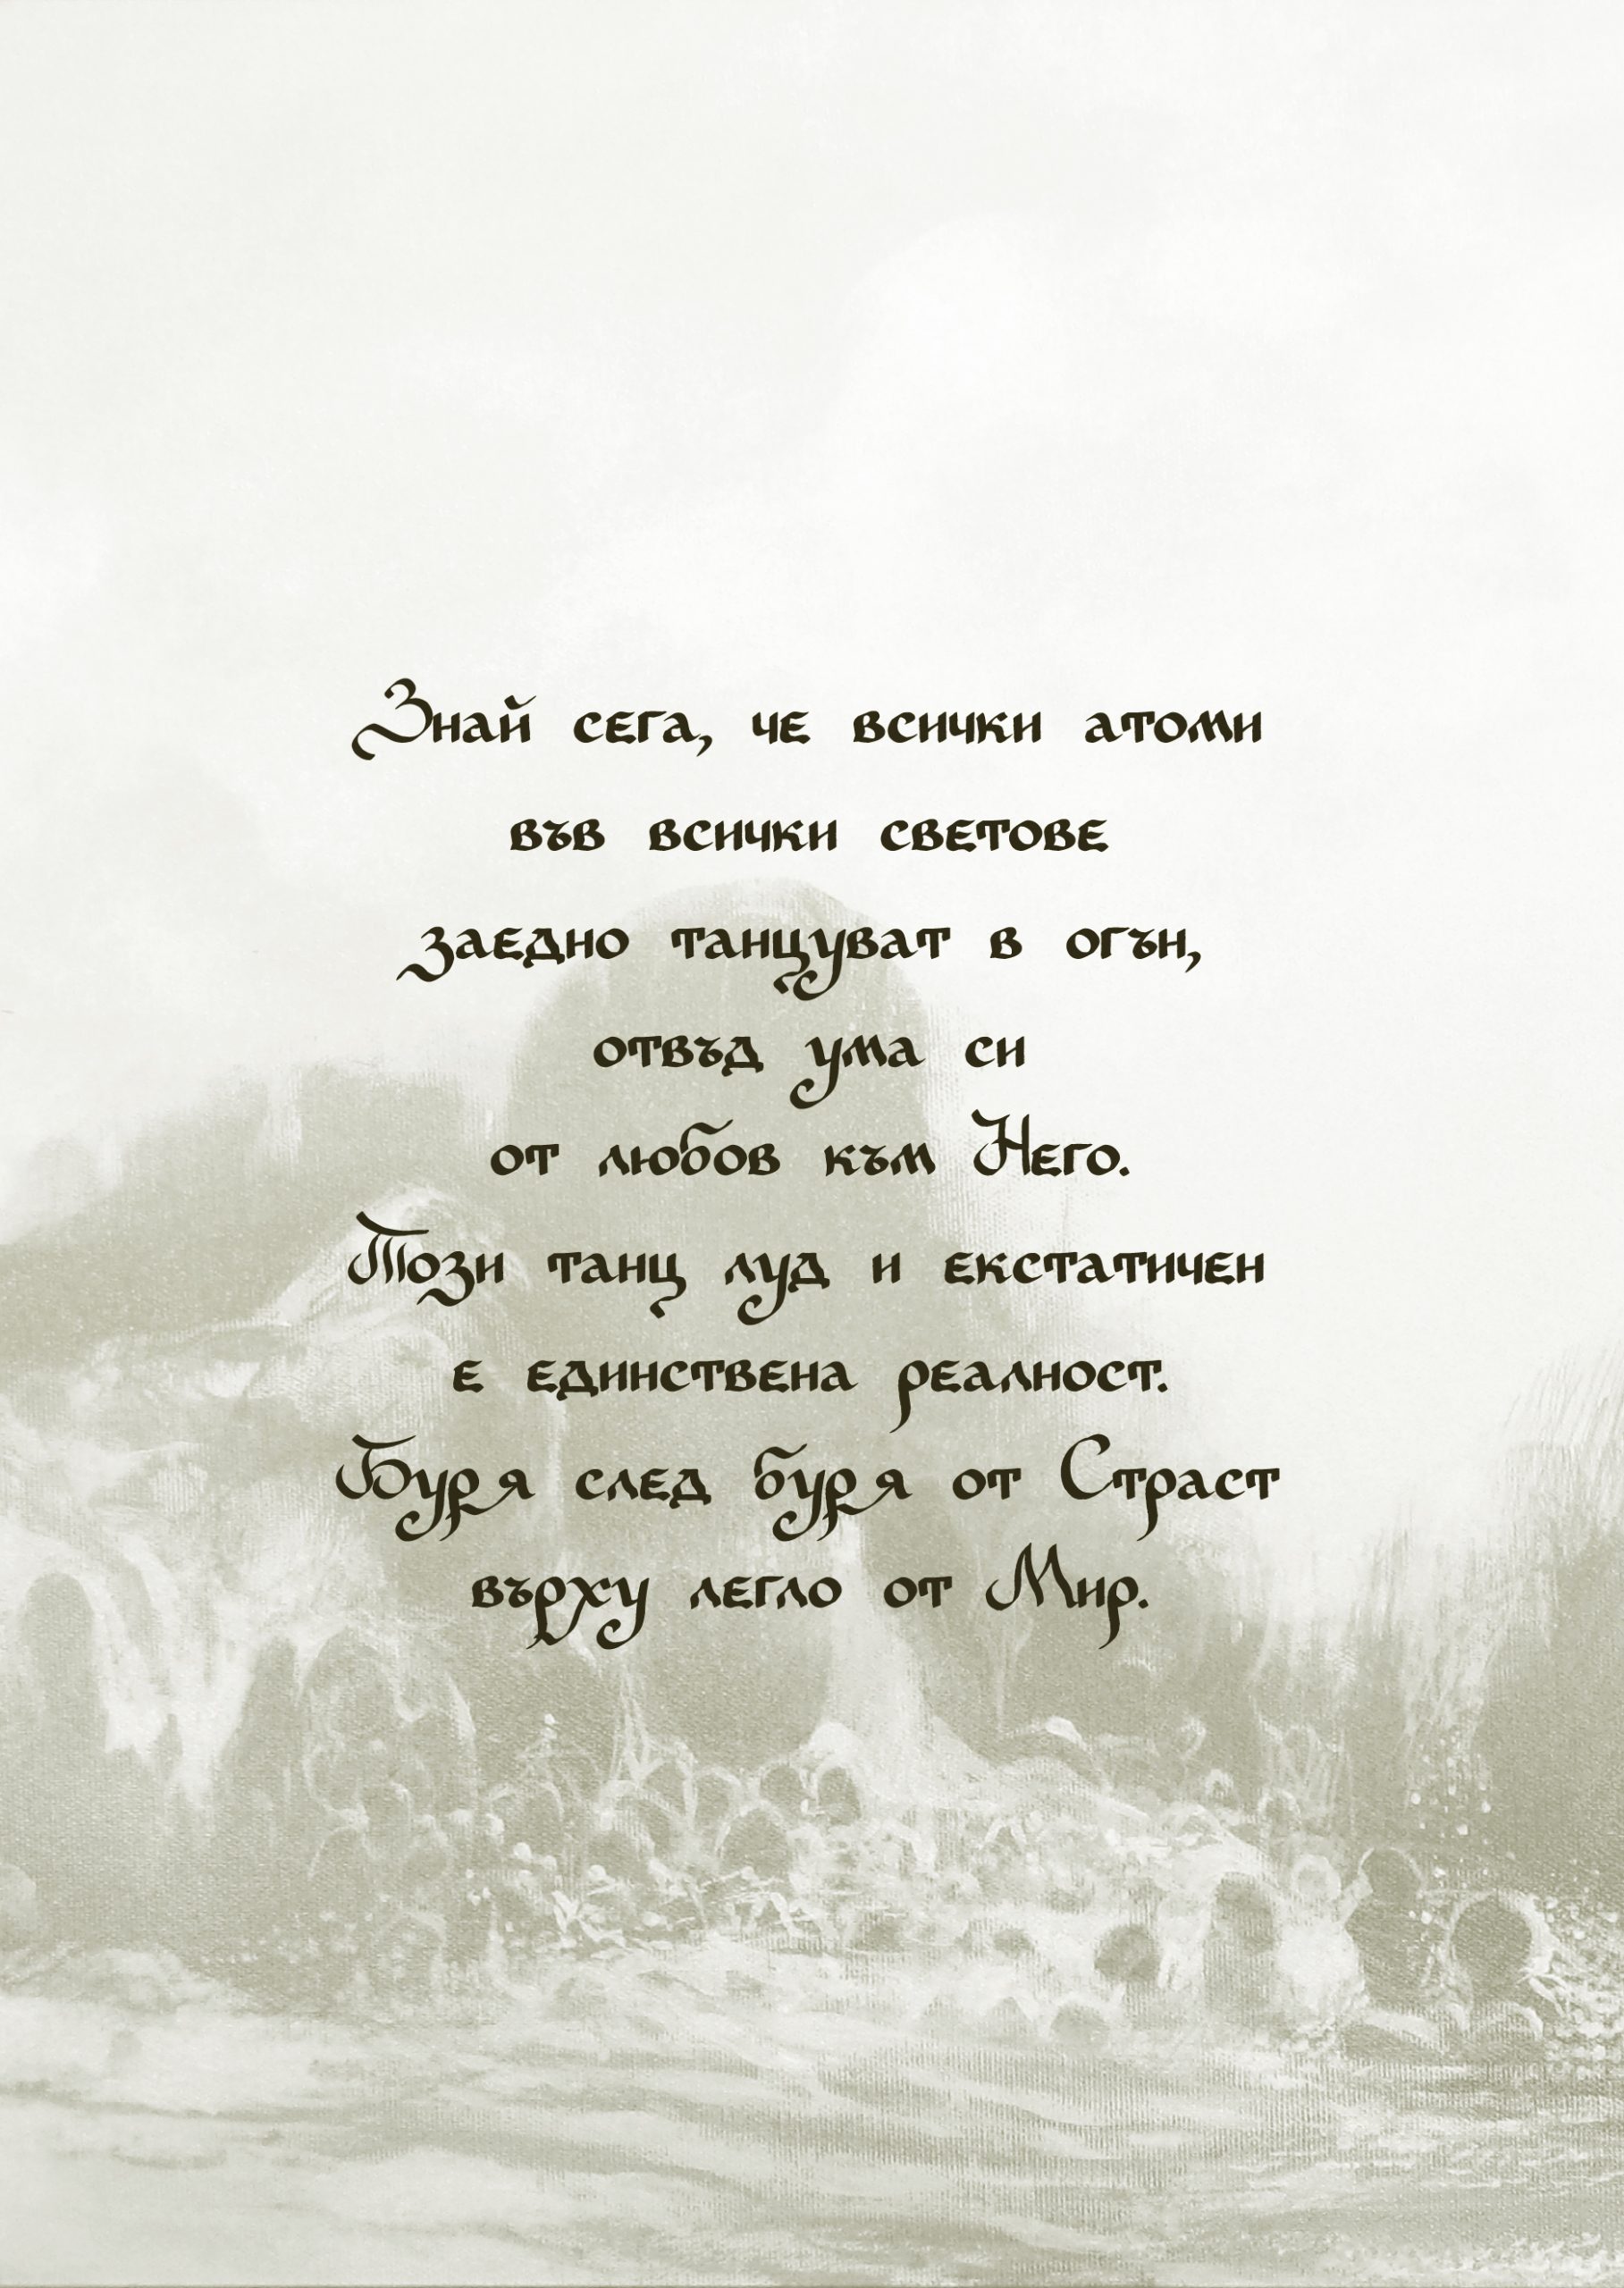 Знай сега, че всички атоми
във всички светове
заедно танцуват в огън,
отвъд ума си
от любов към Него.
Този танц луд и екстатичен
е единствена реалност.
Буря след буря от Страст
върху легло от Мир.